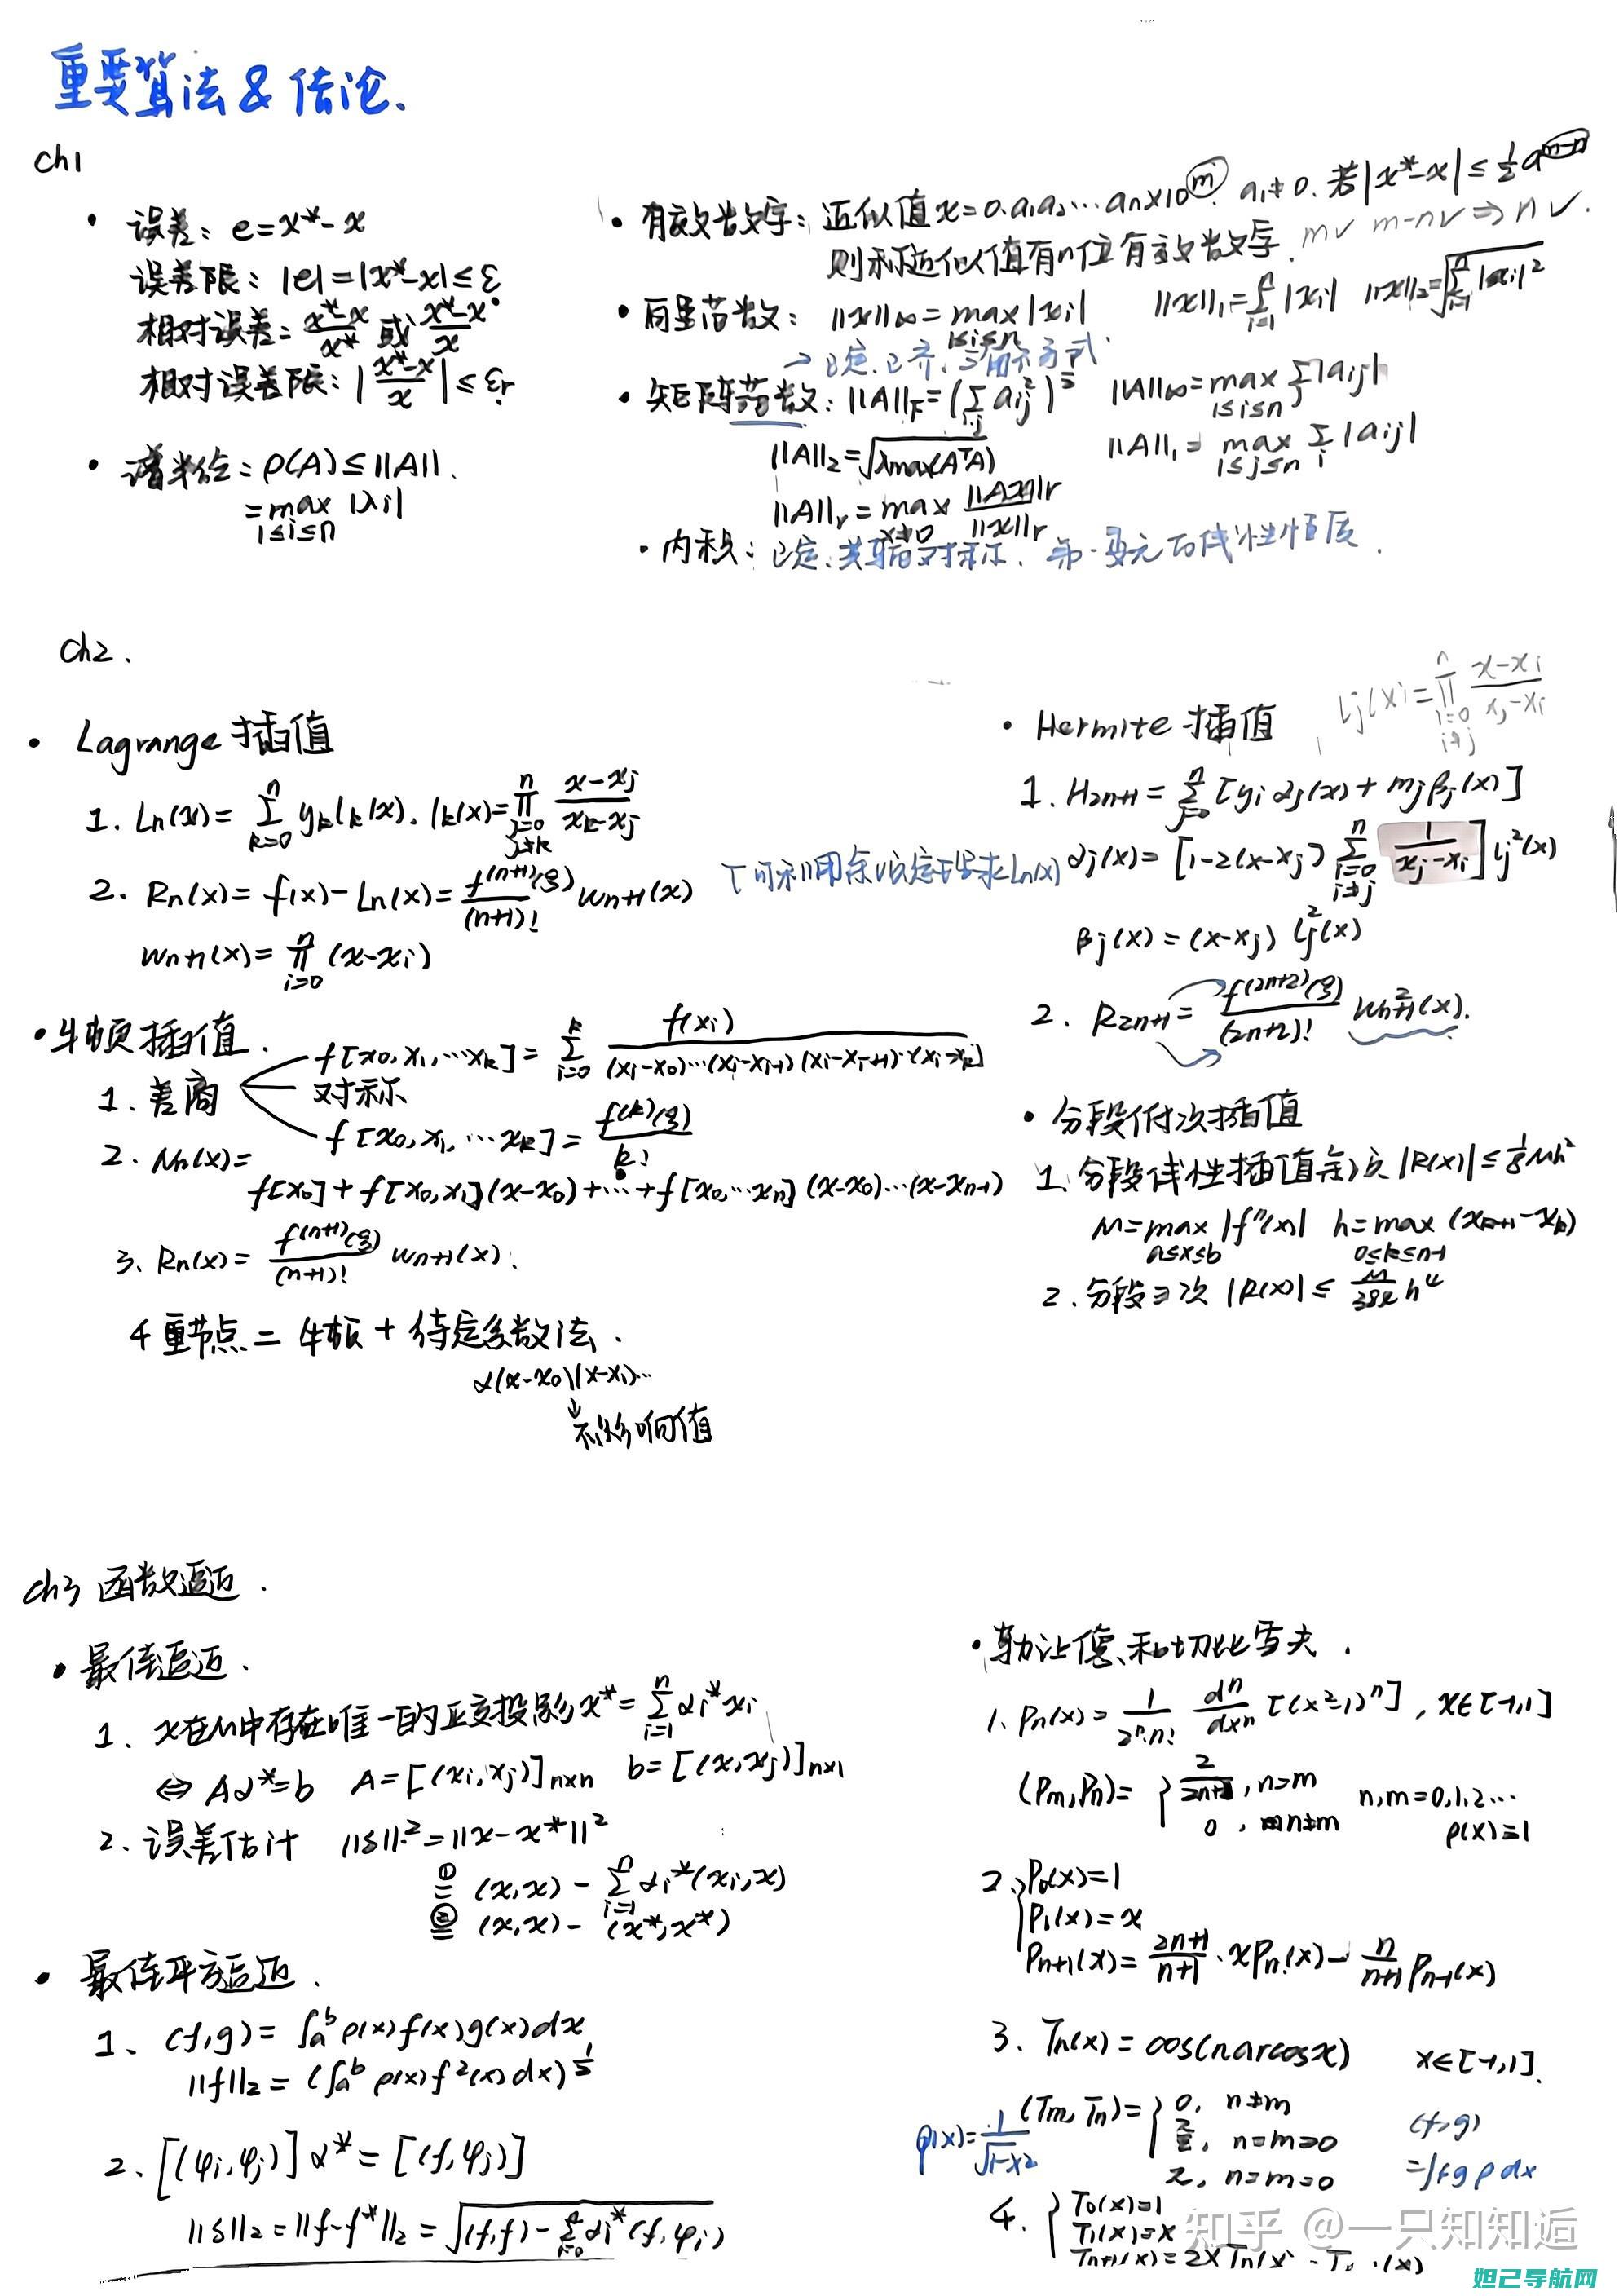 重要算法 & 结论.
ch1
• 误差: e=x*-x
误差限: |e|=|x*-x|≤ε
相对误差= (x*-x)/x* 或 (x*-x)/x
相对误差限: |(x*-x)/x| ≤ εr
• 谱半径: ρ(A)≤||A||.
=max |λi|
1≤i≤n
• 有效数字: 近似值 x=0.a1a2…an×10^m. a1≠0. 若|x*-x|≤ 1/2 a^(m-n)
则称近似值有n位有效数字. m✓ m-n✓ ⇒ n✓.
• 向量范数: ||x||∞ = max |xi| ||x||1 = Σ|xi| ||x||2 = √(Σ|xi|²)
1≤i≤n i=1 n i=1 n
→ 正定.正齐.三角不等式.
• 矩阵范数: ||A||F = (Σ aij²)^(1/2) ||A||∞ = max Σ|aij|
i,j 1≤i≤n j
||A||2 = √(λmax(AᵀA)) ||A||1 = max Σ |aij|
1≤j≤n i
||A||r = max ||Ax||r / ||x||r
x≠0
• 内积: 正定.共轭对称. 第一变元的线性性质.
ch2.
• Lagrange 插值
1. Ln(x)= Σ(k=0..n) yk lk(x). lk(x)= Π(j=0, j≠k..n) (x-xj)/(xk-xj)
2. Rn(x)= f(x)-Ln(x)= f^(n+1)(ξ)/(n+1)! wn+1(x)
wn+1(x)= Π(i=0..n) (x-xi)
• 牛顿插值.
1. 差商
f[x0,x1,…xk]= Σ(i=0..k) f(xi)/((xi-x0)…(xi-xi-1)(xi-xi+1)…(xi-xk))
对称
f[x0,x1,…xk]= f^(k)(ξ)/k!
2. Nn(x)=
f[x0]+f[x0,x1](x-x0)+…+f[x0,…xn](x-x0)…(x-xn-1)
3. Rn(x)= f^(n+1)(ξ)/(n+1)! wn+1(x).
4 重节点 = 牛顿 + 待定系数法.
α(x-x0)(x-x1)…
↓
不影响值
• Hermite 插值 lj(x)= Π(i=0, i≠j..n) (x-xi)/(xj-xi)
1. H2n+1 = Σ(j=0..n) [yi αj(x) + mjβj(x)]
αj(x)= [1-2(x-xj) Σ(i=0, i≠j..n) 1/(xj-xi)] lj²(x)
βj(x)=(x-xj) lj²(x)
2. R2n+1 = f^(2n+2)(ξ)/(2n+2)! wn+1²(x).
• 分段低次插值
1. 分段线性插值余项 |R(x)|≤ 1/8 Mh²
M=max |f''(x)| h=max (xk+1-xk)
a≤x≤b 0≤k≤n-1
2. 分段三次 |R(x)|≤ M/384 h⁴
ch3 函数逼近.
• 最佳逼近.
1. x在M中存在唯一的正交投影 x*= Σ(i=1..n) αi*xi
⇔ Aα*=b A=[(xi,xj)]n×n b=[(x,xj)]n×1
2. 误差估计 ||δ||²=||x-x*||²
①= (x,x) - Σ(i=1..n) αi*(xi,x)
②= (x,x) - (x*,x*)
• 最佳平方逼近.
1. (f,g)= ∫a^b ρ(x)f(x)g(x)dx
||f||2= (∫a^b ρ(x)f²(x)dx)^(1/2)
2. [(φi,φj)]α*=[(f,φj)]
||δ||2=||f-f*||2= √((f,f)- Σ(i=0..n) αi*(f,φi))
• 勒让德和切比雪夫.
1. Pn(x)= 1/(2ⁿ·n!) dⁿ/dxⁿ [(x²-1)ⁿ], x∈[-1,1]
(Pm,Pn)= { 2/(2n+1), n=m n,m=0,1,2…
0, n≠m ρ(x)=1
2. { P0(x)=1
P1(x)=x
Pn+1(x)= (2n+1)/(n+1)·xPn(x)- n/(n+1) Pn-1(x)
3. Tn(x)=cos(narcosx) x∈[-1,1].
ρ(x)= 1/√(1-x²) (Tm,Tn)= { 0, n≠m (f,g)
π/2, n=m≠0 =∫fgρdx
π, n=m=0
4. { T0(x)=1
T1(x)=x
Tn+1(x)=2xTn(x)-T
知乎 @一只知知逅
妲己导航网